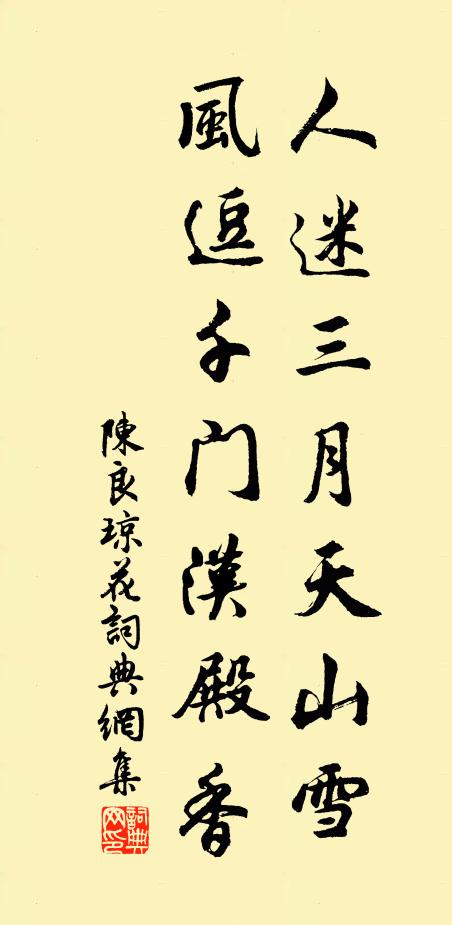 人迷三月天山雪
風逗千门漢殿香
陳良琼花詞典網集
詞典网印